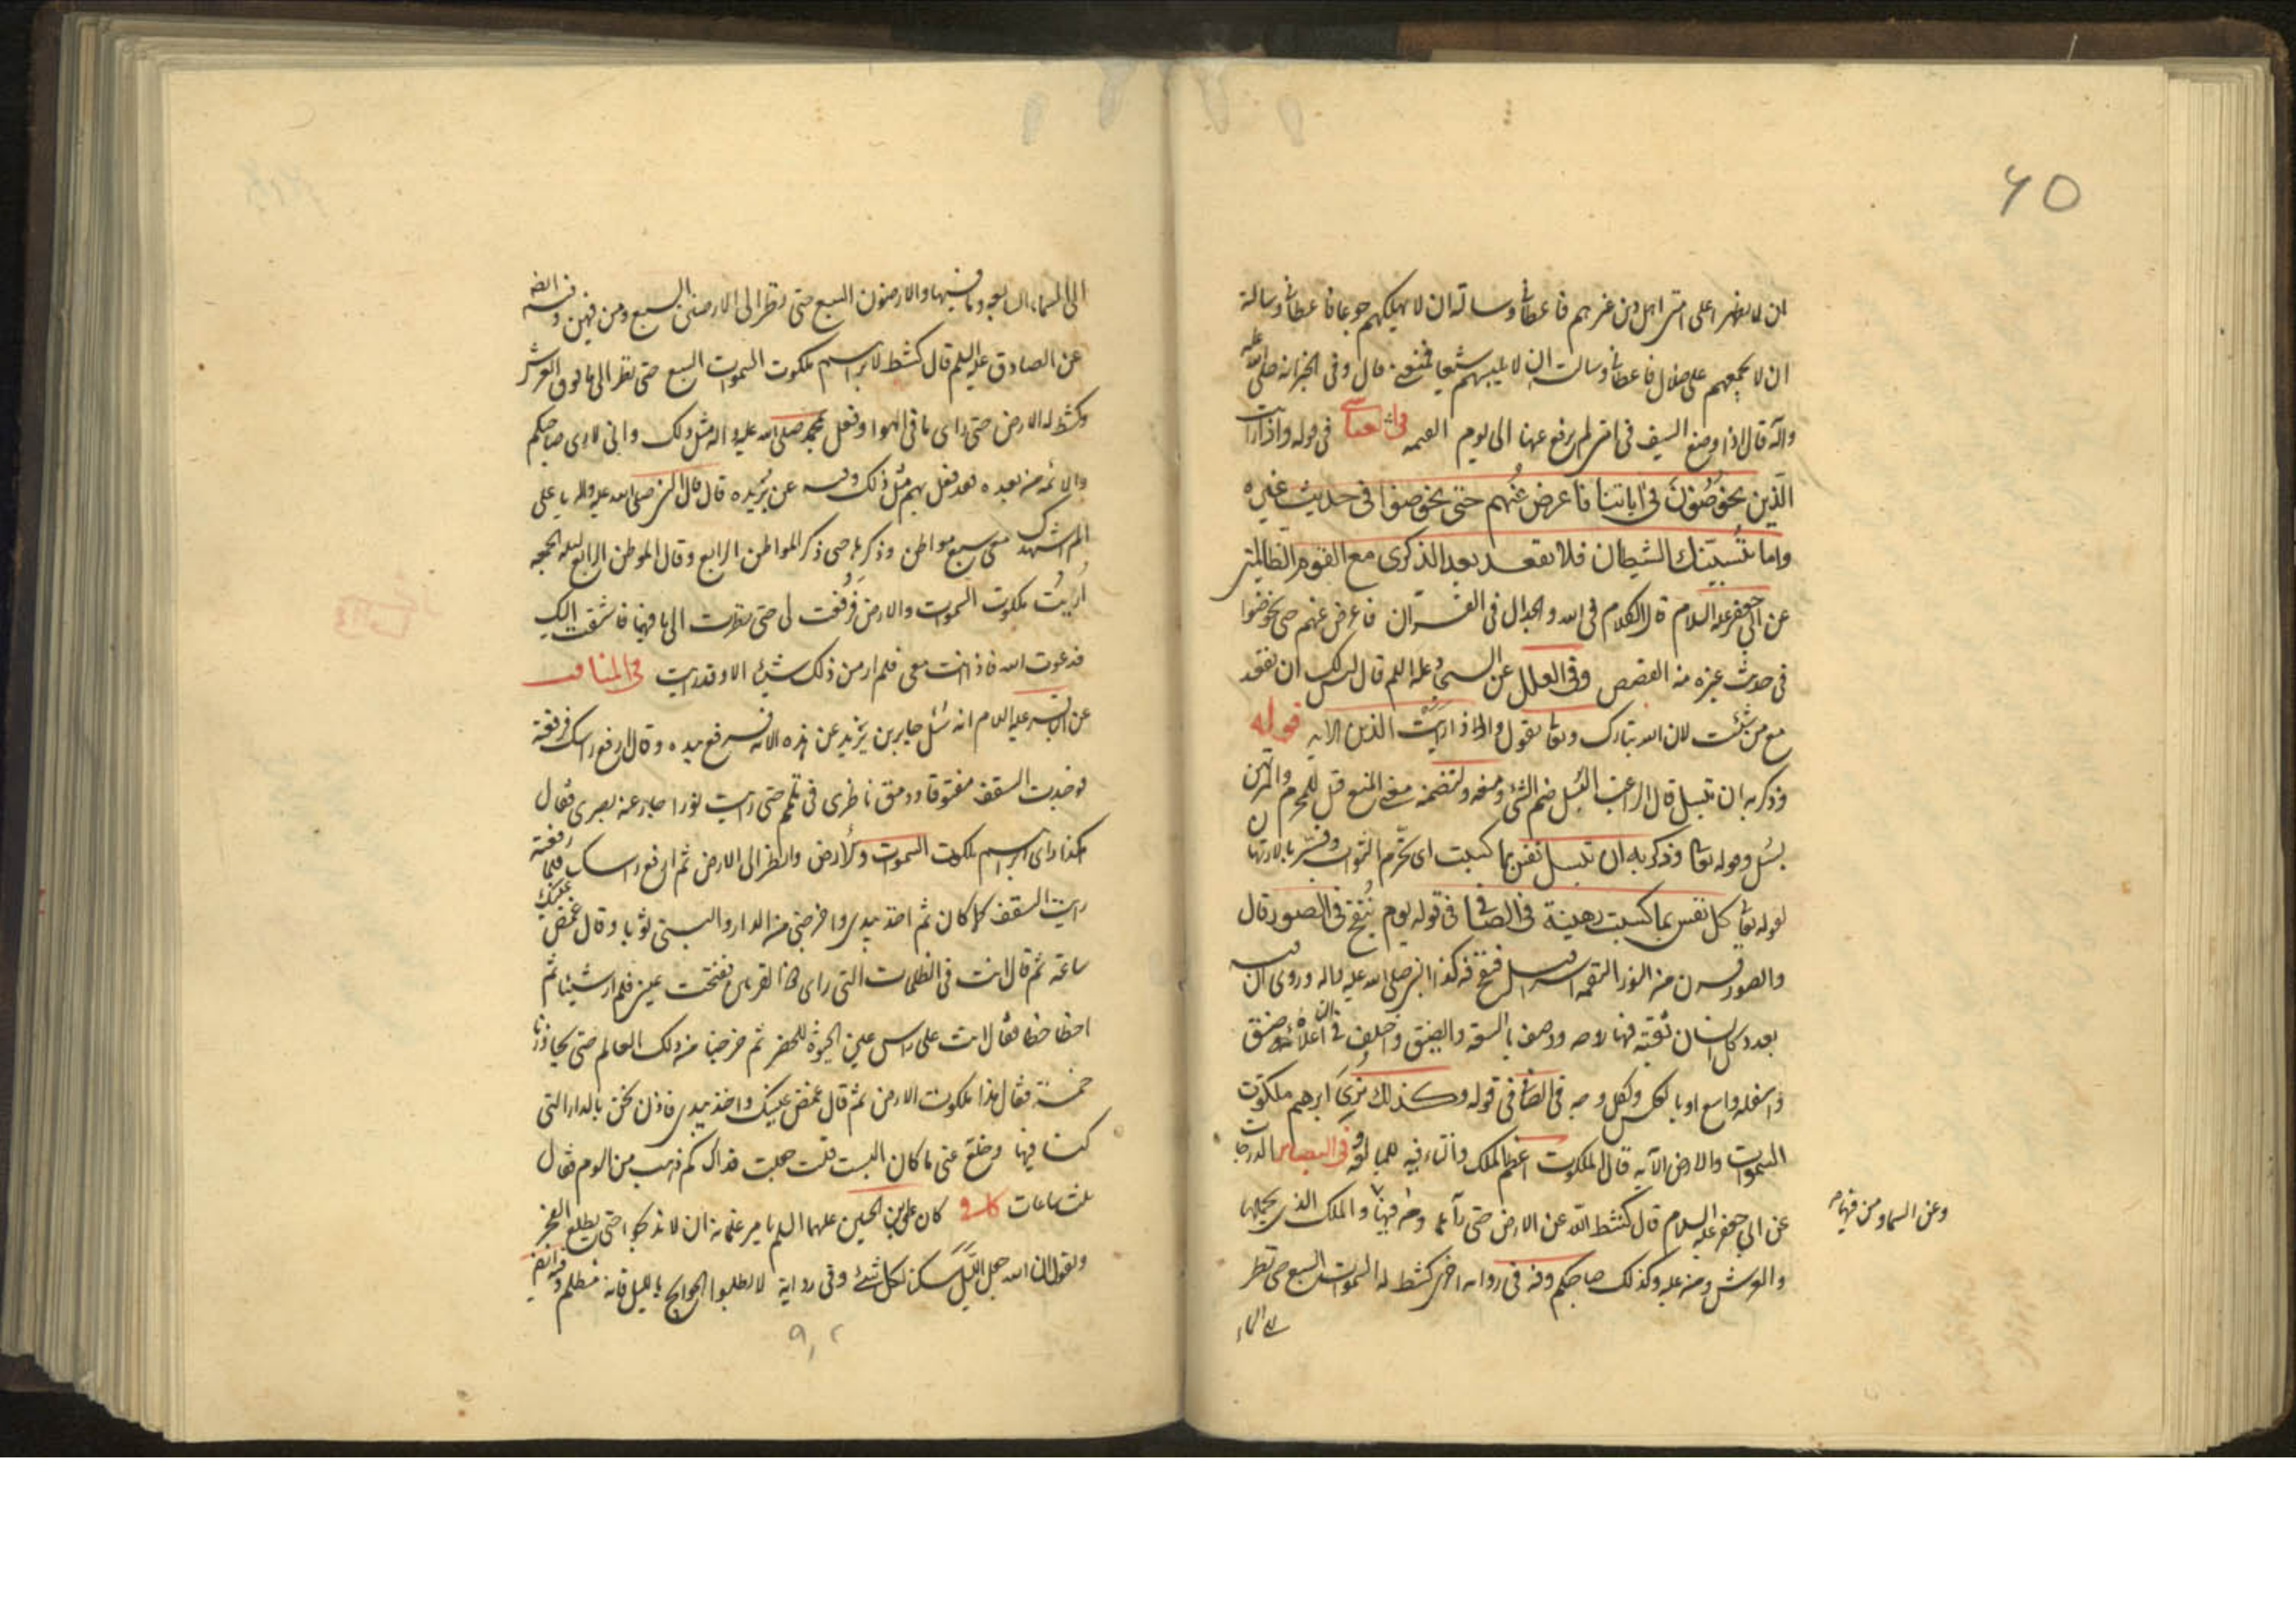 ٦٥
ان لا يظهر على امتى اهل دين غيرهم فاعطانى وسالته ان لا يهلكهم جوعا فاعطانى وسالته
ان لا يجمعهم على ضلال فاعطانى وسالته ان لا يلبسهم شيعا فمنعنى قال وفى الخبر انه صلى الله عليه
وآله قال اذا وضع السيف فى امتى لم يرفع عنها الى يوم القيمه فى قوله واذا رايت
الذين يخوضون فى اياتنا فاعرض عنهم حتى يخوضوا فى حديث غيره
واما ينسينك الشيطان فلا تقعد بعد الذكرى مع القوم الظالمين
عن ابى جعفر عليه السلام قال الكلام فى الله والجدال فى القران فاعرض عنهم حتى يخوضوا
فى حديث غيره منه القصص وفى العلل عن السجاد عليه السلم قال ليس لك ان تقعد
مع من شئت لان الله تبارك وتعا يقول واذا رايت الذين الايه قوله
وذكر به ان تبسل قال الراغب البسل ضم الشئ ومنعه ولتضمنه معنى المنع قيل للمحرم والمرتهن
بسل وقوله تعا وذكر به ان تبسل نفس بما كسبت اى تحرم الثواب وفسر بالارتهان
لقوله تعا كل نفس بما كسبت رهينة فى الصافى فى قوله يوم ينفخ فى الصور قال
والصور قرن من النور التقمه اسرافيل فينفخ فيه كذا النبى صلى الله عليه واله وروى ان فيه
بعدد كل انسان ثقبة فيها روحه ووصف بالسعة والضيق واختلف فى ان اعلاه ضيق
واسفله واسع او بالعكس ولكل وجه فى الصافى فى قوله وكذلك نرى ابرهيم ملكوت
السموات والارض الآيه قال الملكوت اعظم الملك والتاء فيه للمبالغة وفى البصائر
عن ابى جعفر عليه السلام قال كشط الله عن الارض حتى رآها ومن فيها والملك الذى يحملها
وعن السماء ومن فيها
والعرش ومن عليه وكذلك صاحبكم وفى رواية اخرى كشط له السموات السبع حتى نظر
الى السماء
الى السماء السابعة وما فيها والارضون السبع حتى نظر الى الارضين السبع ومن فيهن وفيه ايضا
عن الصادق عليه السلم قال كشط لابرهيم ملكوت السموات السبع حتى نظر الى ما فوق العرش
وكشط له الارض حتى راى ما فى الهوا وفعل بمحمد صلى الله عليه واله مثل ذلك وانى لارى صاحبكم
والائمه من بعده قد فعل بهم مثل ذلك وفيه عن بريده قال قال النبى صلى الله عليه واله يا على
الم اشهدك معى سبع مواطن وذكرها حتى ذكر المواطن الرابع وقال الموطن الرابع ليلة الجمعه
اريت ملكوت السموات والارض رفعت لى حتى نظرت الى ما فيها فاشتقت اليك
فدعوت الله فاذا انت معى فلم ار من ذلك شيئا الا وقد رايت فى المناقب
عن الباقر عليه السلام انه سئل جابر بن يزيد عن هذه الاية فرفع يده وقال ارفع راسك فرفعته
فوجدت السقف متفرقا ورمق ناظرى فى ثلمة حتى رايت نورا حار عنه بصرى فقال
هكذا راى ابرهيم ملكوت السموات والارض وانظر الى الارض ثم ارفع راسك فلما رفعته
رايت السقف كما كان ثم اخذ بيدى واخرجنى من الدار والبسنى ثوبا وقال غمض عينيك
ساعة ثم قال انت فى الظلمات التى راى ذو القرنين ففتحت عينى فلم ار شيئا ثم
اخطا خطا فقال انت على راس عين الحيوة للخضر ثم خرجنا من ذلك العالم حتى تجاوزنا
خمسة فقال هذا ملكوت الارض ثم قال غمض عينيك واخذ بيدى فاذن نحن بالدار التى
كنا فيها وخلع عنى ما كان البست قلت جعلت فداك كم ذهب من اليوم فقال
ثلث ساعات كا فى كان على بن الحسين عليهما السلم يامر غلمانه ان لا يذبحوا حتى يطلع الفجر
ويقول ان الله جعل الليل سكنا لكل شئ وفى رواية لا تطلبوا الحوايج بالليل فانه مظلم وفيه ايضا